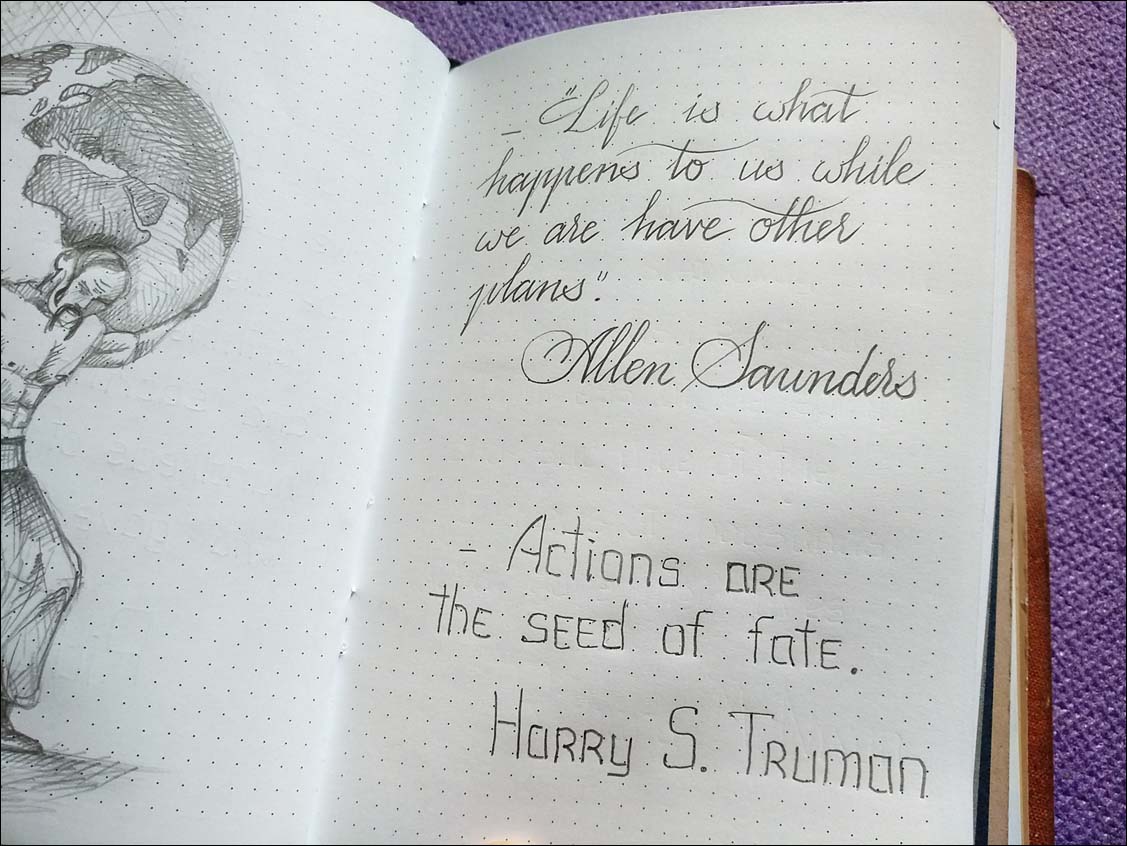 – "Life is what
happens to us while
we are have other
plans".
Allen Saunders
- Actions are
the seed of fate.
Harry S. Truman